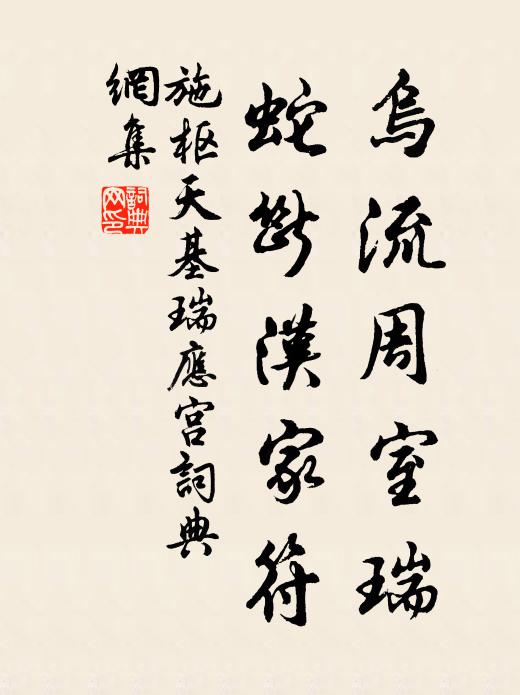 烏流周室瑞
蛇斷漢家符
施枢天基瑞應宫詞典
網集
詞典
网印